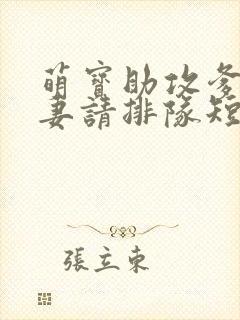 萌寶助攻爹
妻請排隊短
張立東